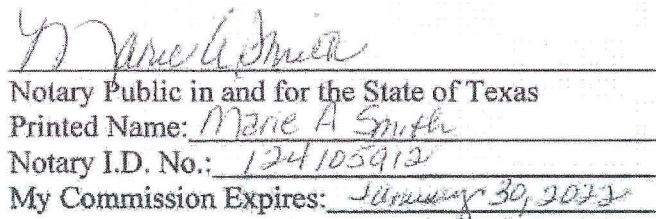 Marie A Smith
Notary Public in and for the State of Texas
Printed Name: Marie A Smith
Notary I.D. No.: 124105912
My Commission Expires: January 30, 2022